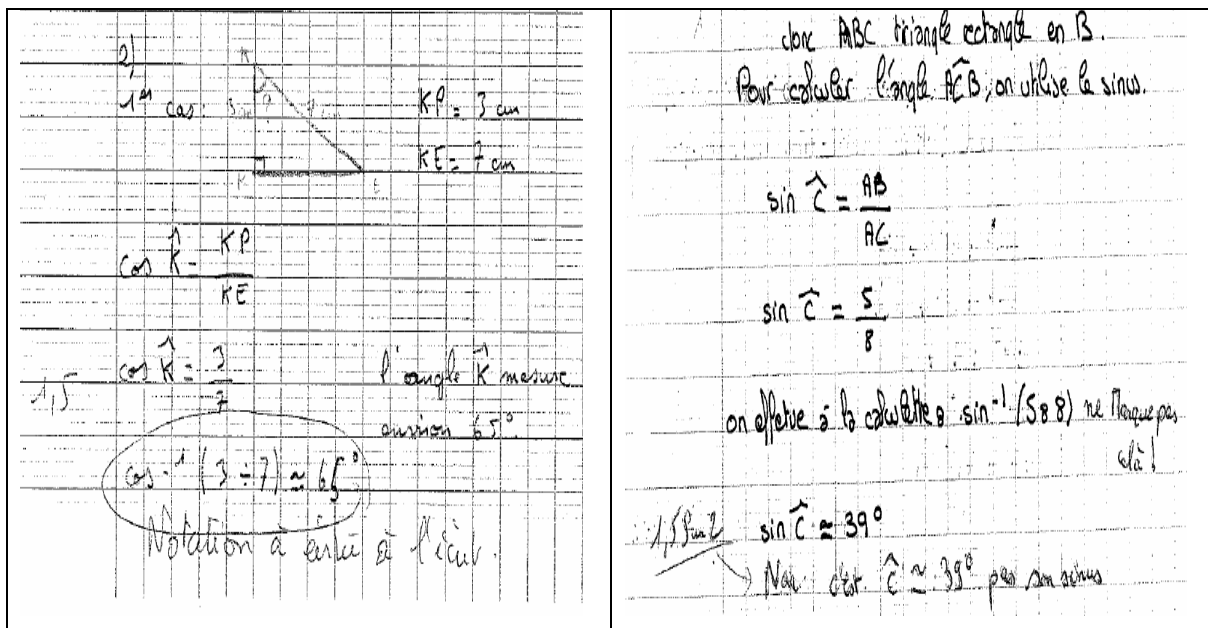 2)
1er cas:
3 cm
?
7 cm
K
E
KP = 3 cm
KE = 7 cm
cos K̂ = KP / KE
cos K̂ = 3 / 7
l'angle K̂ mesure
environ 65°.
1,5
cos-1 (3 ÷ 7) ≈ 65°
Notation à éviter à l'écrit.
donc ABC triangle rectangle en B.
Pour calculer l'angle ACB, on utilise le sinus.
sin Ĉ = AB / AC
sin Ĉ = 5 / 8
on effectue à la calculette : sin-1 (5÷8) ne marque pas
cela !
sin Ĉ ≈ 39°
1,5 sur 2
Non c'est Ĉ ≈ 39° pas son sinus